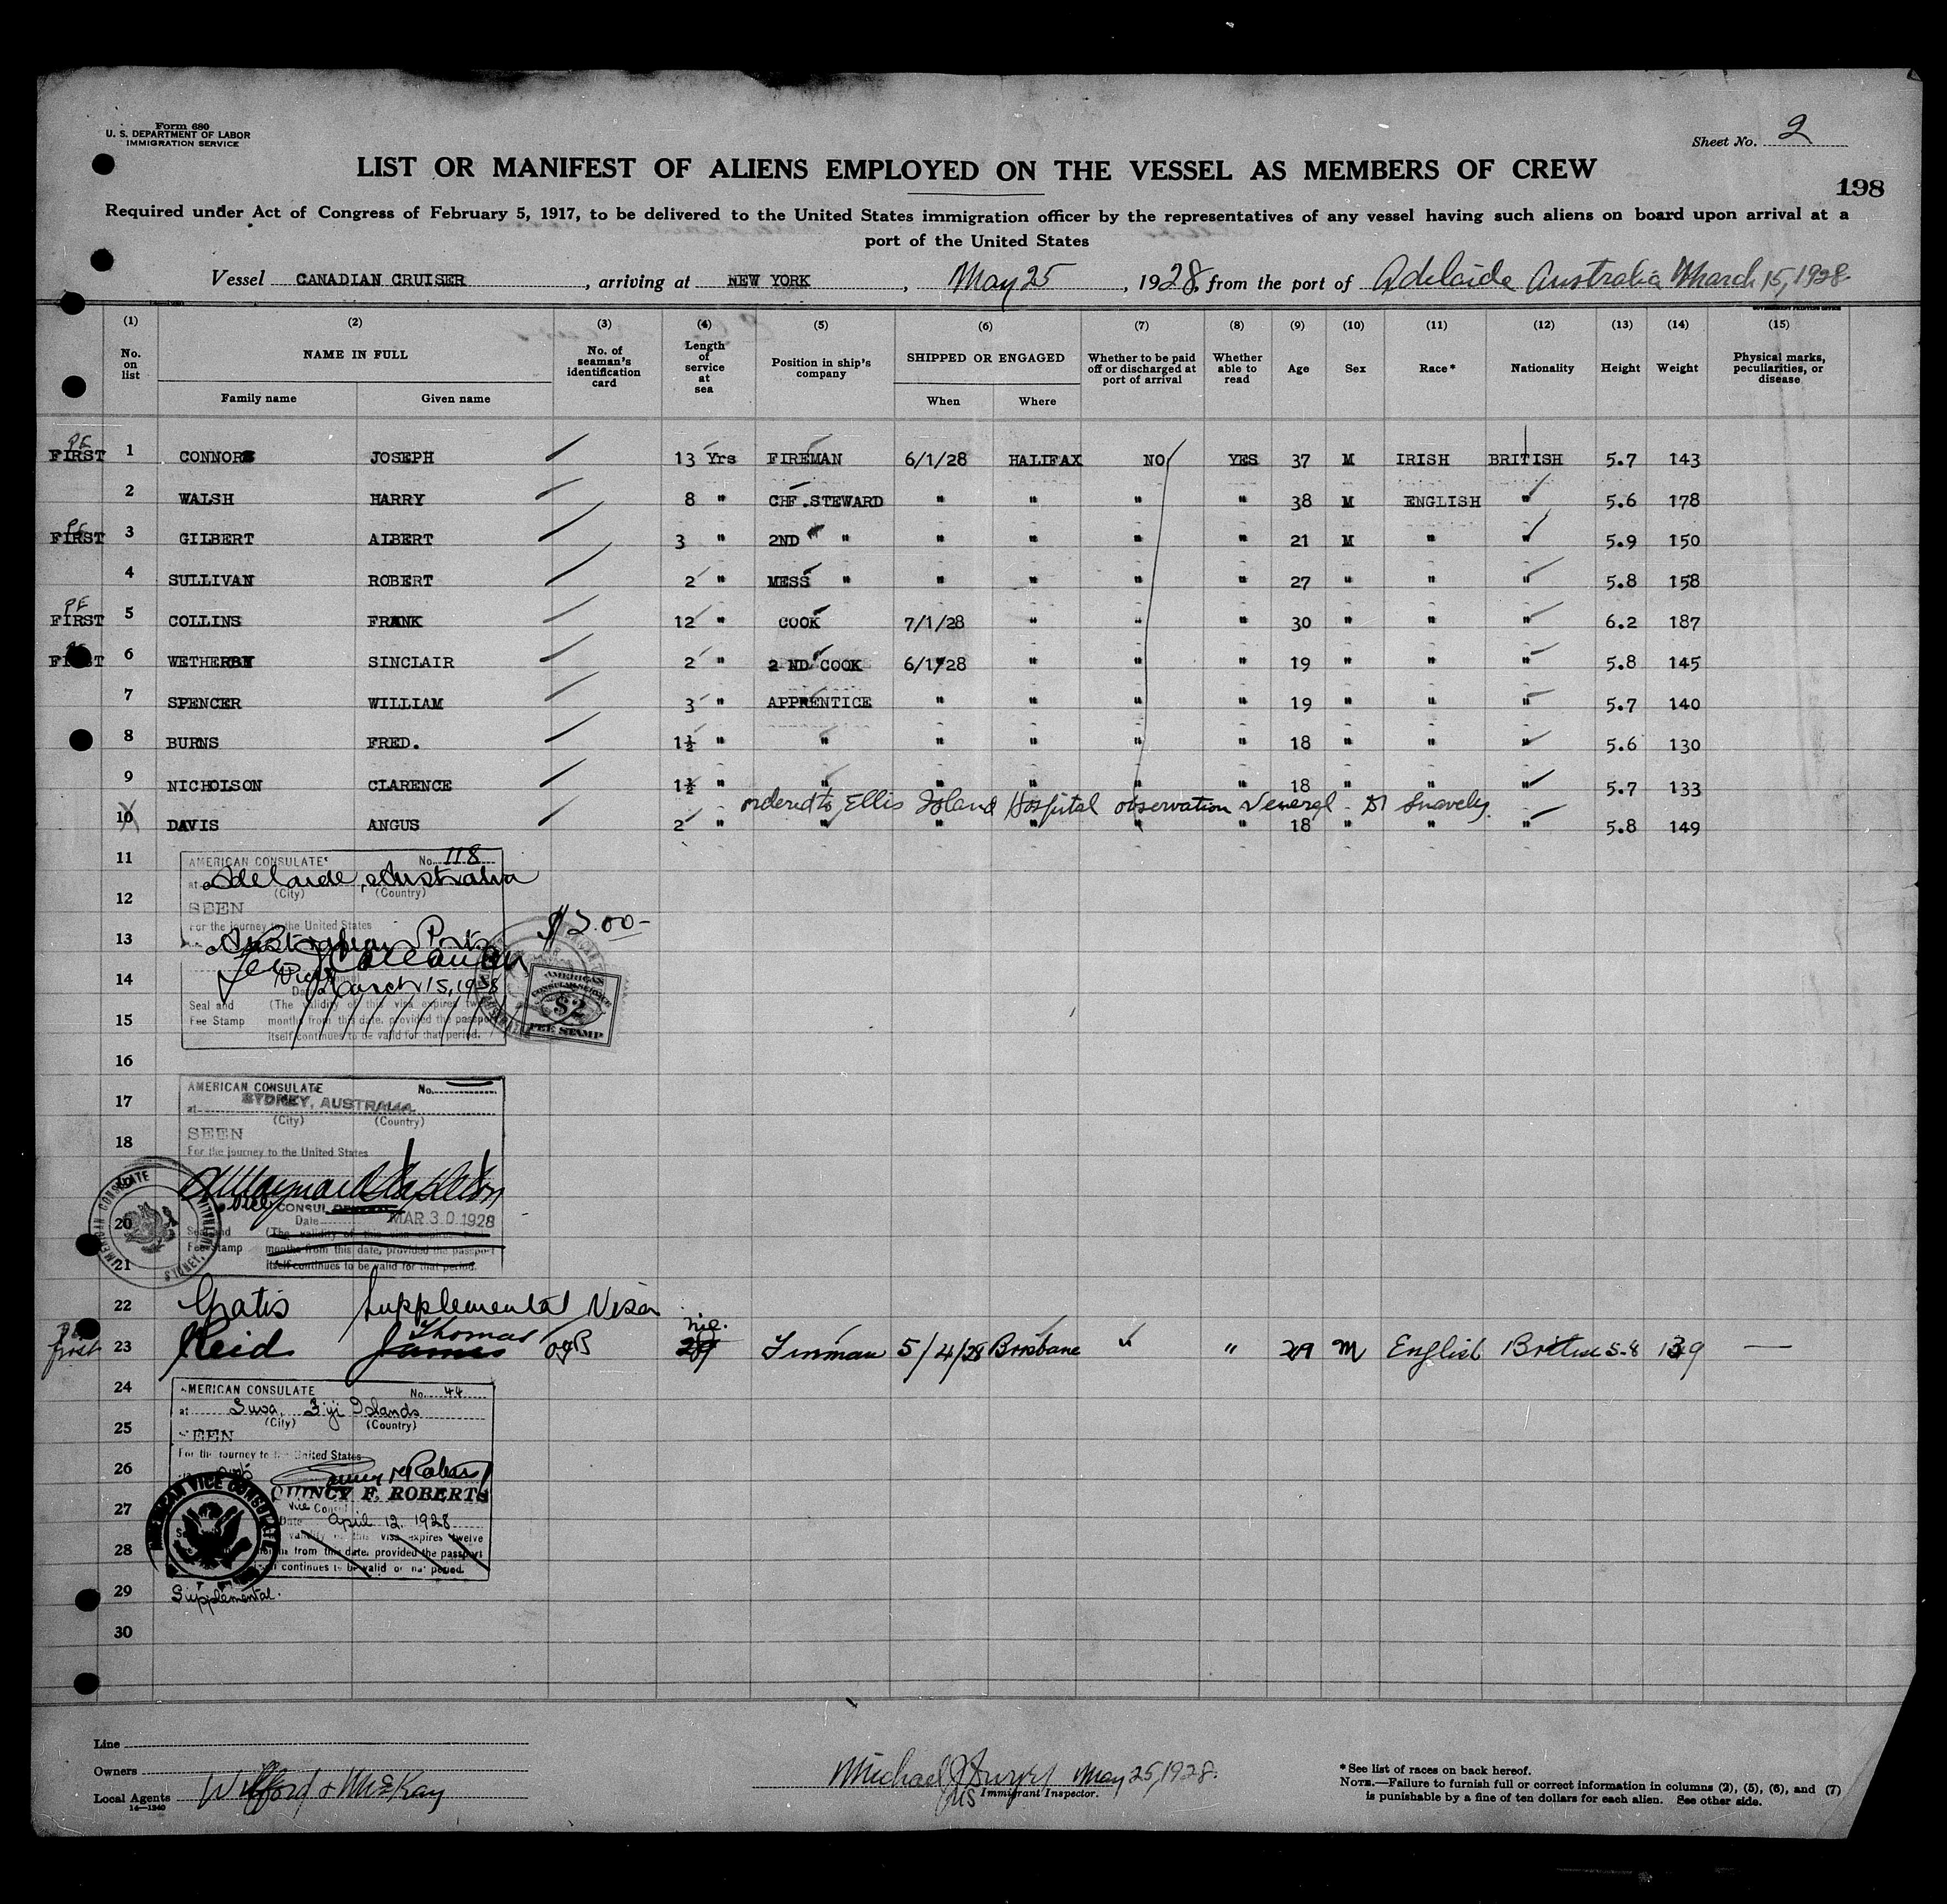 Form 680
U. S. DEPARTMENT OF LABOR
IMMIGRATION SERVICE
Sheet No. 2
LIST OR MANIFEST OF ALIENS EMPLOYED ON THE VESSEL AS MEMBERS OF CREW
198
Required under Act of Congress of February 5, 1917, to be delivered to the United States immigration officer by the representatives of any vessel having such aliens on board upon arrival at a
port of the United States
Vessel CANADIAN CRUISER, arriving at NEW YORK, May 25, 1928, from the port of Adelaide Australia March 15, 1928
GOVERNMENT PRINTING OFFICE
(1) (2) (3) (4) (5) (6) (7) (8) (9) (10) (11) (12) (13) (14) (15)
No. on list NAME IN FULL No. of seaman's identification card Length of service at sea Position in ship's company SHIPPED OR ENGAGED Whether to be paid off or discharged at port of arrival Whether able to read Age Sex Race* Nationality Height Weight Physical marks, peculiarities, or disease
Family name Given name When Where
PE FIRST 1 CONNORS JOSEPH 13 Yrs FIREMAN 6/1/28 HALIFAX NO YES 37 M IRISH BRITISH 5.7 143
2 WALSH HARRY 8 " CHF.STEWARD " " " " 38 M ENGLISH " 5.6 178
PE FIRST 3 GILBERT ALBERT 3 " 2ND " " " " " 21 M " " 5.9 150
4 SULLIVAN ROBERT 2 " MESS " " " " " 27 " " " 5.8 158
PE FIRST 5 COLLINS FRANK 12 " COOK 7/1/28 " " " 30 " " " 6.2 187
PE FIRST 6 WETHERBY SINCLAIR 2 " 2 ND COOK 6/1/28 " " " 19 " " " 5.8 145
7 SPENCER WILLIAM 3 " APPRENTICE " " " " 19 " " " 5.7 140
8 BURNS FRED. 1½ " " " " " " 18 " " " 5.6 130
9 NICHOLSON CLARENCE 1½ " " " " " " 18 " " " 5.7 133
ordered to Ellis Island Hospital observation Veneral - Dr Snavely.
X 10 DAVIS ANGUS 2 " " " " " " 18 " " " 5.8 149
11
AMERICAN CONSULATE No. 118
at Adelaide, Australia
(City) (Country)
12
SEEN
For the journey to the United States
$2.00-
13
Australian Ports
14
Vice
Date March 15, 1928
AMERICAN CONSULAR SERVICE $2 FEE STAMP
Seal and Fee Stamp (The validity of this visa expires twelve
15
months from this date, provided the passport
itself continues to be valid for that period.
16
AMERICAN CONSULATE No.
17
at SYDNEY, AUSTRALIA
(City) (Country)
SEEN
18
For the journey to the United States
AMERICAN CONSULATE SYDNEY, AUSTRALIA
Vice CONSUL
20
Date MAR 30 1928
Seal and Fee Stamp (The validity of this visa expires
months from this date, provided the passport
21
itself continues to be valid for that period.
22 Gratis Supplemental Visa
PE first 23 Reid James Thomas nil. 29 Fireman 5/4/28 Brisbane " " 29 M English British 5-8 139 —
24
AMERICAN CONSULATE No. 44
at Suva, Fiji Islands
(City) (Country)
25
SEEN
For the journey to the United States
26
QUINCY F. ROBERTS
27
Vice Consul
AMERICAN VICE CONSULATE
Date April 12, 1928
validity of this visa expires twelve
28
months from this date, provided the passport
continues to be valid for that period.
29
Supplemental.
30
Line
Owners
Local Agents Wifford & McKay
14—1240
Michael J Dwyer May 25, 1928.
Immigrant Inspector.
* See list of races on back hereof.
NOTE.—Failure to furnish full or correct information in columns (2), (5), (6), and (7)
is punishable by a fine of ten dollars for each alien. See other side.